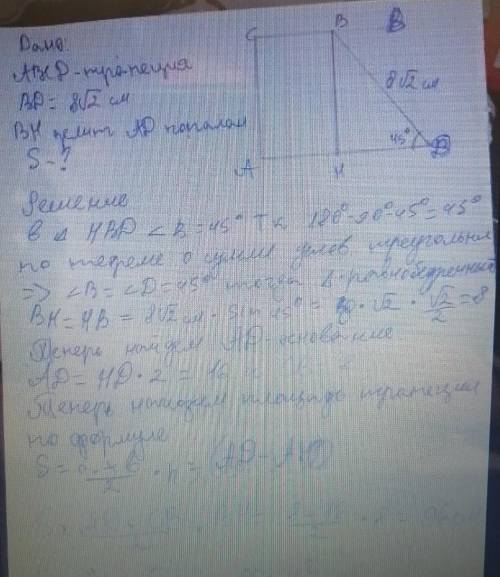 Дано:
C B B
ABCD - трапеция
BD = 8√2 см
8√2 см
BH делит AD пополам
45°
S - ?
A H D
Решение
В △ HBD ∠B = 45° т.к 180° - 90° - 45° = 45°
по теореме о сумме углов треугольни
=> ∠B = ∠D = 45° тогда △ - равнобедренный
BH = HB = 8√2 см · sin 45° = 8 · √2 · √2/2 = 8
Теперь найдем AD - основание
AD = HD · 2 = 16
Теперь найдем площадь трапеции
по формуле
S = a + b/2 · h = (AD - AH)